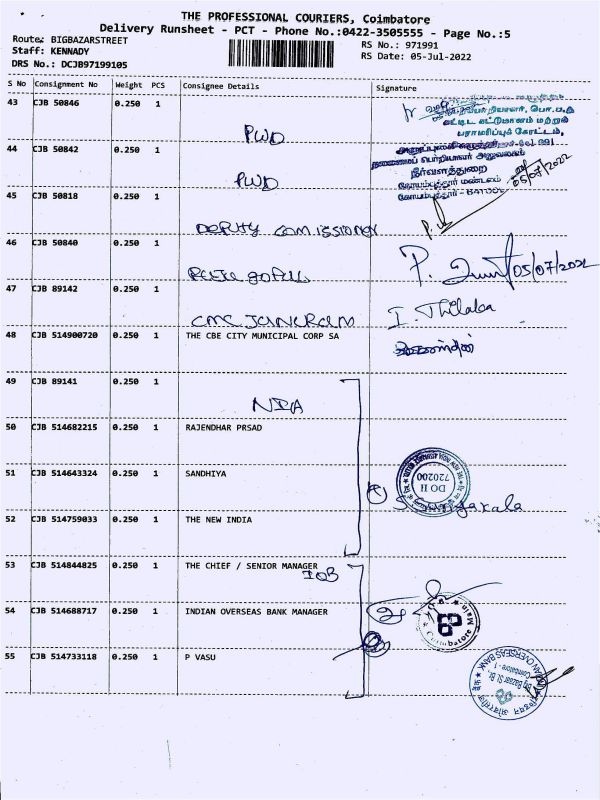 THE PROFESSIONAL COURIERS, Coimbatore
Delivery Runsheet - PCT - Phone No.:0422-3505555 - Page No.:5
Route: BIGBAZARSTREET
RS No.: 971991
Staff: KENNADY
RS Date: 05-Jul-2022
DRS No.: DCJB97199105
S No Consignment No Weight PCS Consignee Details Signature
43 CJB 50846 0.250 1
PWD
கட்டிட கட்டுமானம் மற்றும்
பராமரிப்புக் கோட்டம்,
44 CJB 50842 0.250 1
PWD
நீர்வளத்துறை
கோயம்புத்தூர் மண்டலம்
05/07/2022
45 CJB 50818 0.250 1
DEPUTY COMISSIONER
46 CJB 50840 0.250 1
05/07/2022
47 CJB 89142 0.250 1
I. Thilaka
48 CJB 514900720 0.250 1 THE CBE CITY MUNICIPAL CORP SA
49 CJB 89141 0.250 1
NIA
50 CJB 514682215 0.250 1 RAJENDHAR PRSAD
51 CJB 514643324 0.250 1 SANDHIYA
DO II
720200
52 CJB 514759033 0.250 1 THE NEW INDIA
53 CJB 514844825 0.250 1 THE CHIEF / SENIOR MANAGER
IOB
54 CJB 514688717 0.250 1 INDIAN OVERSEAS BANK MANAGER
Coimbatore Main
55 CJB 514733118 0.250 1 P VASU
INDIAN OVERSEAS BANK
Big Bazaar St. Br.
Coimbatore - 1